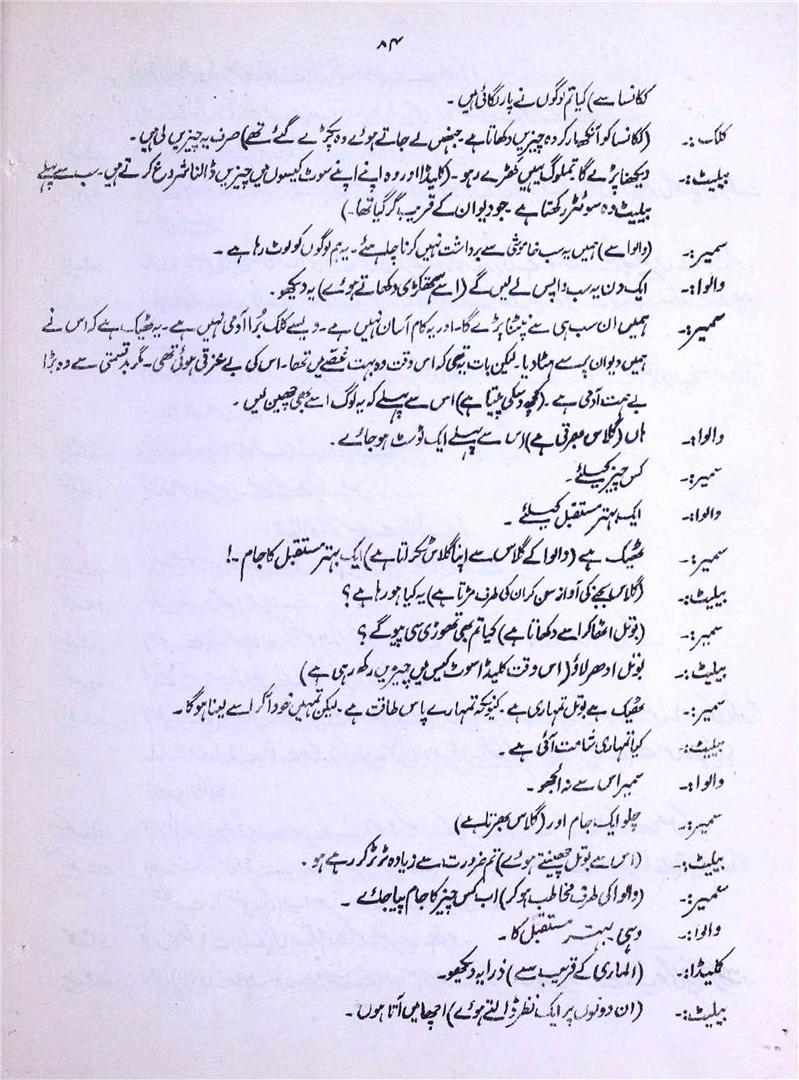 ۸۴
ککانسا سے) کیا تم لوگوں نے پار لگائی ہیں۔
کلک :۔ (ککانسا کو آنکھ مار کر وہ چیزیں دکھاتا ہے جنھیں لے جاتے ہوئے وہ پکڑے گئے تھے) صرف یہ چیزیں لی ہیں۔
بیلیٹ :۔ دیکھنا پڑے گا تم لوگ یہیں کھڑے رہو۔ (کلیڈا اور وہ اپنے اپنے سوٹ کیسوں میں چیزیں ڈالنا شروع کرتے ہیں۔ سب سے پہلے
بیلیٹ وہ سوئٹر رکھتا ہے۔ جو دیوان کے قریب گر گیا تھا۔)
سمیر :۔ (والوا سے) ہمیں یہ سب خاموشی سے برداشت نہیں کرنا چاہئے۔ یہ ہم لوگوں کو لوٹ رہا ہے۔
والوا :۔ ایک دن یہ سب واپس لے لیں گے (اسے ہتھکڑی دکھاتے ہوئے) یہ دیکھو۔
سمیر :۔ ہمیں ان سب ہی سے نپٹنا پڑے گا۔ اور یہ کام آسان نہیں ہے۔ ویسے کلک برا آدمی نہیں ہے۔ یہ ٹھیک ہے کہ اس نے
ہمیں دیوان پر سے ہٹا دیا۔ لیکن بات یہ تھی کہ اس وقت وہ بہت غصے میں تھا۔ اس کی بے عزتی ہوئی تھی۔ مگر بدقسمتی سے وہ بڑا
بے ہمت آدمی ہے۔ (کچھ وہسکی پیتا ہے) اس سے پہلے کہ یہ لوگ اسے بھی چھین لیں۔
والوا :۔ ہاں (گلاس بھرتی ہے) اس سے پہلے ایک ٹوسٹ ہو جائے۔
سمیر :۔ کس چیز کیلئے۔
والوا :۔ ایک بہتر مستقبل کیلئے۔
سمیر :۔ ٹھیک ہے (والوا کے گلاس سے اپنا گلاس ٹکراتا ہے) ایک بہتر مستقبل کا جام۔!
بیلیٹ :۔ (گلاس بجنے کی آواز سن کر ان کی طرف مڑتا ہے) یہ کیا ہو رہا ہے؟
سمیر :۔ (بوتل اٹھا کر اسے دکھاتا ہے) کیا تم بھی تھوڑی سی پیو گے؟
بیلیٹ :۔ بوتل ادھر لاؤ (اس وقت کلیڈا سوٹ کیس میں چیزیں رکھ رہی ہے)
سمیر :۔ ٹھیک ہے بوتل تمہاری ہے۔ کیونکہ تمہارے پاس طاقت ہے۔ لیکن تمہیں خود آ کر اسے لینا ہوگا۔
بیلیٹ :۔ کیا تمہاری شامت آئی ہے۔
والوا :۔ سمیر اس سے نہ الجھو۔
سمیر :۔ چلو ایک جام اور (گلاس بھرتا ہے)
بیلیٹ :۔ (اس سے بوتل چھینتے ہوئے) تم ضرورت سے زیادہ ٹرٹر کر رہے ہو۔
سمیر :۔ (والوا کی طرف مخاطب ہو کر) اب کس چیز کا جام پیا جائے۔
والوا :۔ وہی بہتر مستقبل کا۔
کلیڈا :۔ (الماری کے قریب سے) ذرا یہ دیکھو۔
بیلیٹ :۔ (ان دونوں پر ایک نظر ڈالتے ہوئے) اچھا میں آتا ہوں۔